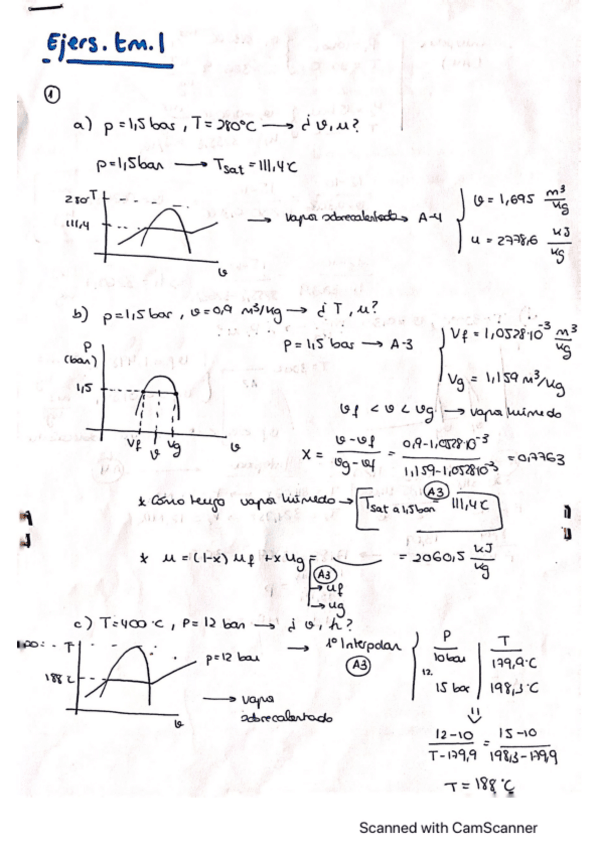 Ejers. tm. 1
①
a) p = 1,5 bar, T = 280°C → ¿ v, u?
p = 1,5 bar → Tsat = 111,4°C
280 T
111,4
v
→ vapor sobrecalentado → A-4
v = 1,695 m³/kg
u = 2778,6 kJ/kg
b) p = 1,5 bar, v = 0,9 m³/kg → ¿ T, u?
P = 1,5 bar → A-3
Vf = 1,0528·10⁻³ m³/kg
Vg = 1,159 m³/kg
P
(bar)
1,5
Vf v vg v
vf < v < vg → vapor húmedo
X = (v-vf)/(vg-vf) = (0,9-1,0528·10⁻³)/(1,159-1,0528·10⁻³) = 0,7763
* Como tengo vapor húmedo → Tsat a 1,5 bar = 111,4°C
A3
* u = (1-x) uf + x ug = = 2060,5 kJ/kg
A3
→ uf
→ ug
c) T = 400°C, P = 12 bar → ¿ v, h?
T
188°C
p = 12 bar
v
→ vapor sobrecalentado
→ 1º Interpolar
A3
P | T
10 bar | 179,9°C
12.
15 bar | 198,3°C
⇓
(12-10)/(T-179,9) = (15-10)/(198,3-179,9)
T = 188°C
Scanned with CamScanner